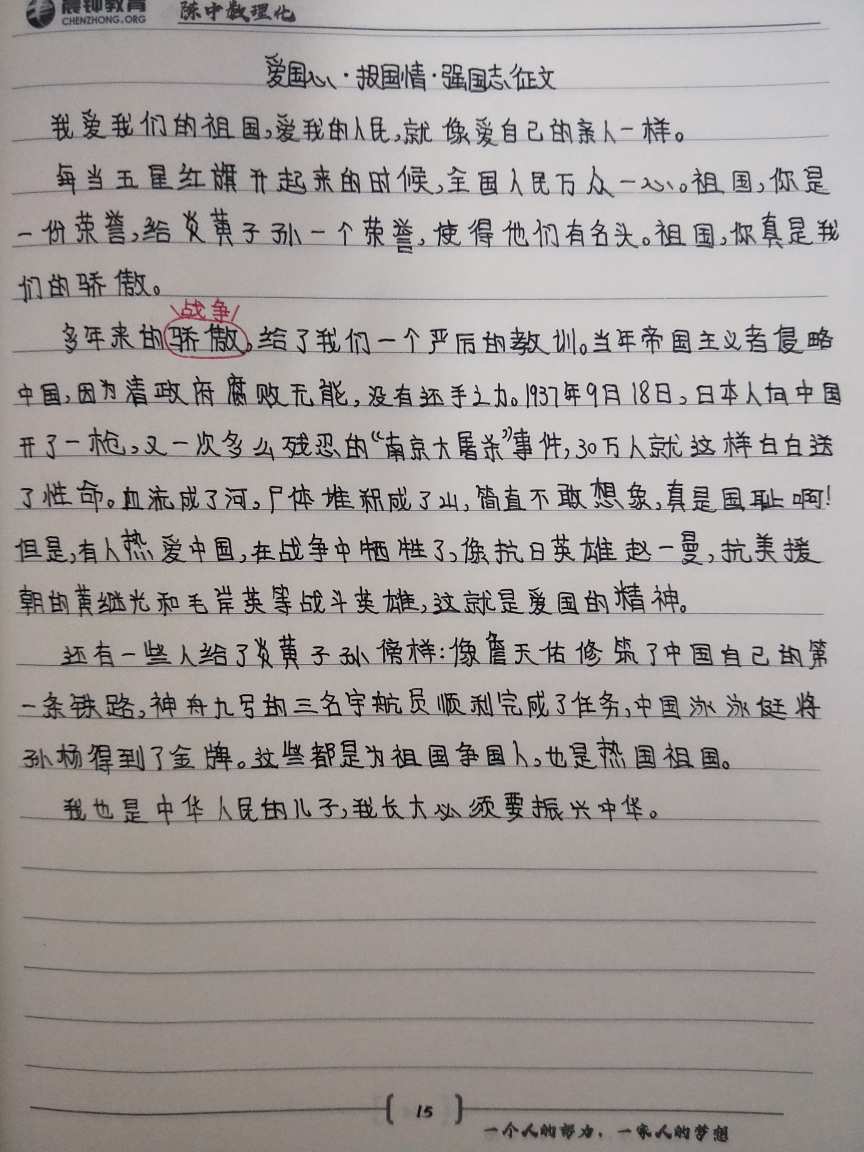 晨钟教育
CHENZHONG.ORG
陈中数理化
爱国心·报国情·强国志征文
我爱我们的祖国,爱我的人民,就像爱自己的亲人一样。
每当五星红旗升起来的时候,全国人民万众一心。祖国,你是
一份荣誉,给炎黄子孙一个荣誉,使得他们有名头。祖国,你真是我
们的骄傲。
战争
多年来的骄傲,给了我们一个严厉的教训。当年帝国主义者侵略
中国,因为清政府腐败无能,没有还手之力。1937年9月18日,日本人向中国
开了一枪,又一次多么残忍的“南京大屠杀”事件,30万人就这样白白送
了性命。血流成了河,尸体堆积成了山,简直不敢想象,真是国耻啊!
但是,有人热爱中国,在战争中牺牲了,像抗日英雄赵一曼,抗美援
朝的黄继光和毛岸英等战斗英雄,这就是爱国的精神。
还有一些人给了炎黄子孙傍样:像詹天佑修筑了中国自己的第
一条铁路,神舟九号的三名宇航员顺利完成了任务,中国泳泳健将
孙杨得到了金牌。这些都是为祖国争国人,也是热国祖国。
我也是中华人民的儿子,我长大必须要振兴中华。
15
一个人的努力,一家人的梦想